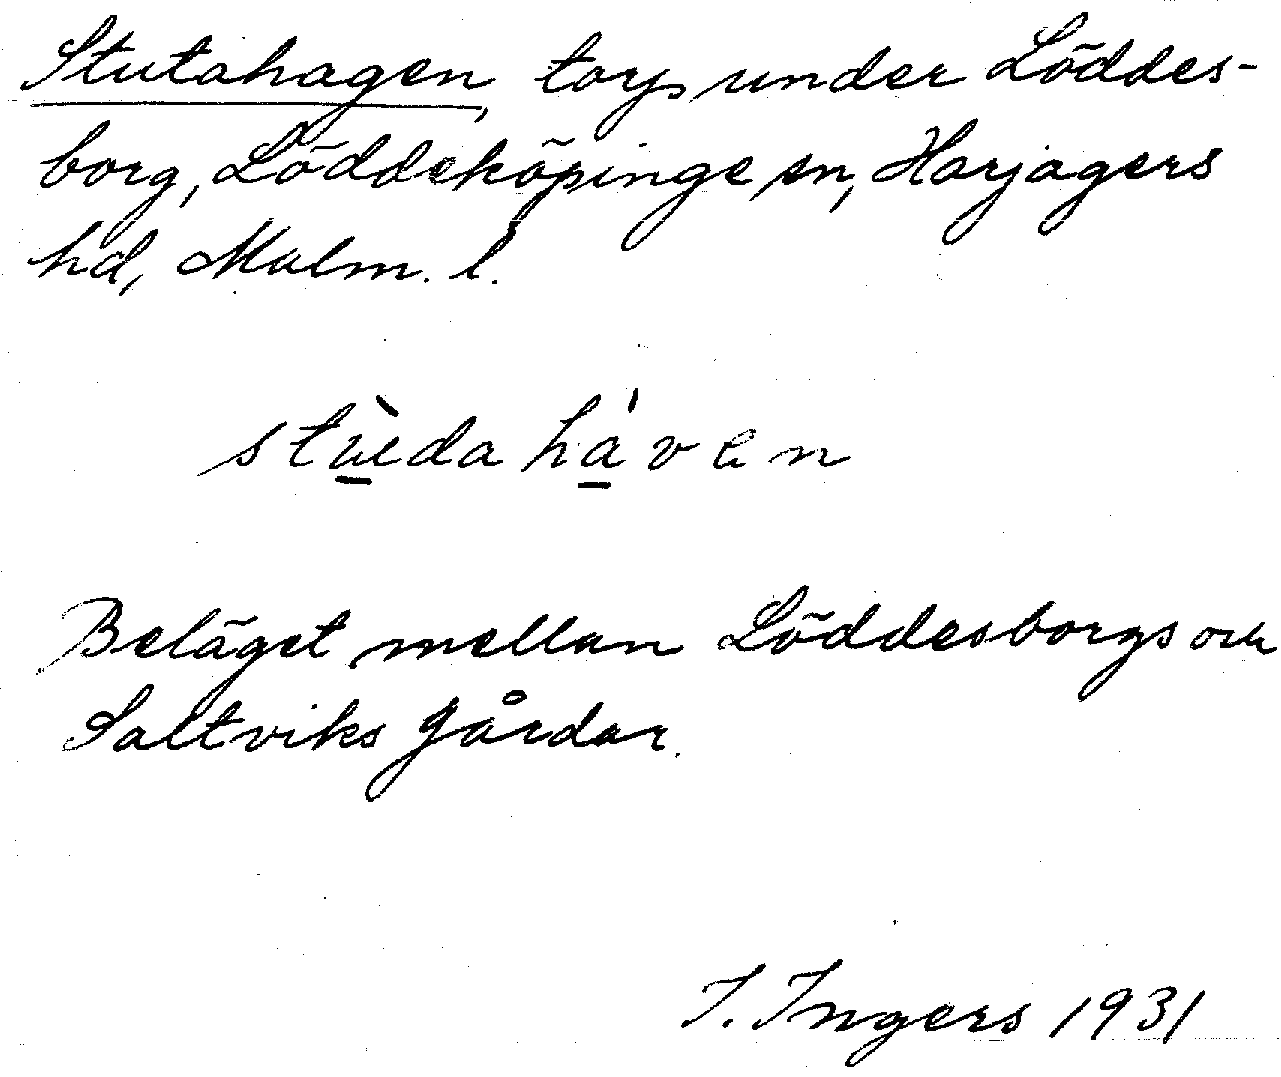 Stutahagen, torp under Löddes-
borg, Löddeköpinge sn, Harjagers
hd, Malm. l.
stùedahávɐn
Beläget mellan Löddesborgs och
Saltviks gårdar.
I. Ingers 1931